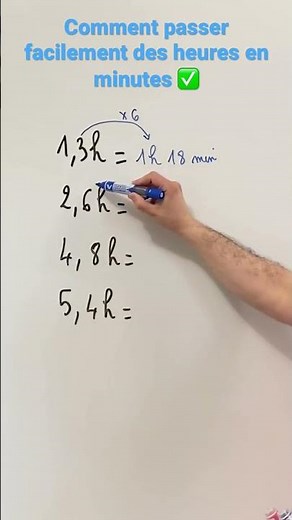 Comment passer
facilement des heures en
minutes ✅
×6
1,3h = 1h 18 min
2,6h =
4,8h =
5,4h =